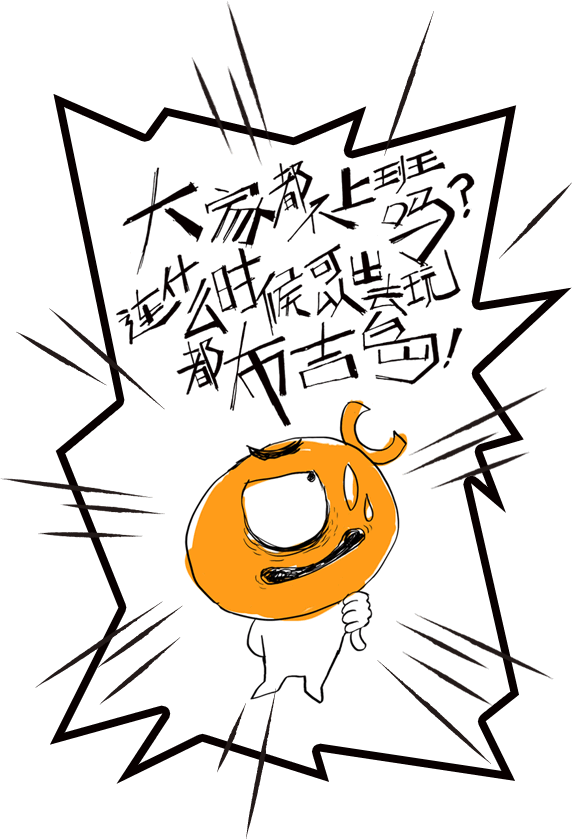 大家都不上班吗?
连什么时候可以出去玩
都有吉岛!